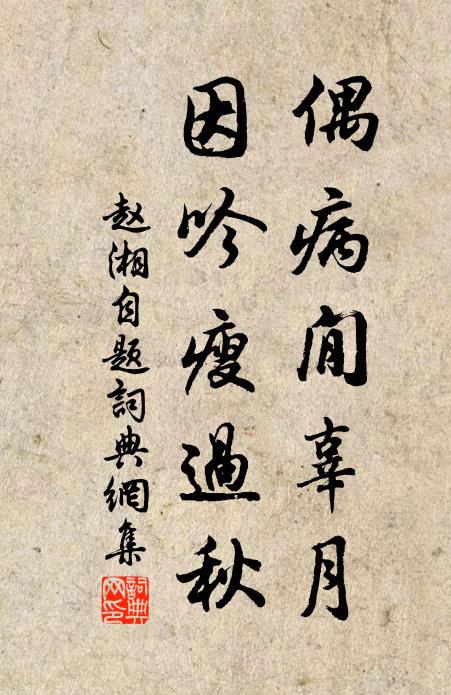 偶病閒辜月
因吟瘦過秋
赵湘自题詞典網集
詞典网印